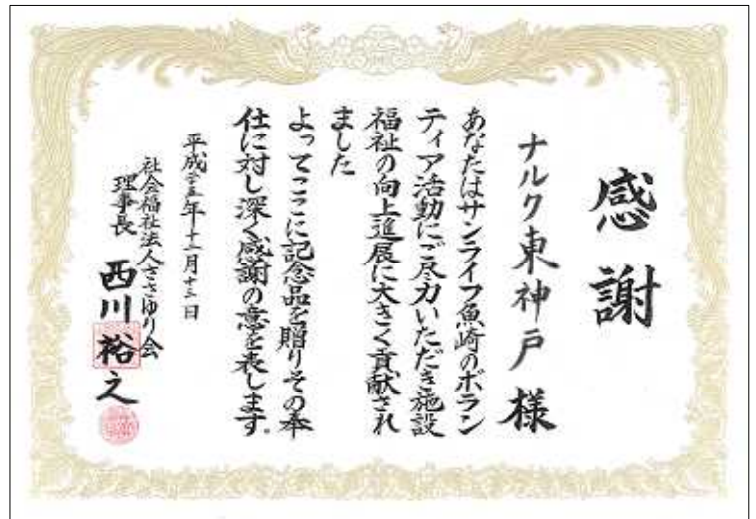 感謝
ナルク東神戸様
あなたはサンライフ魚崎のボラン
ティア活動にご尽力いただき施設
福祉の向上進展に大きく貢献され
ました
よってここに記念品を贈りその奉
仕に対し深く感謝の意を表します。
平成二十五年十二月十三日
社会福祉法人ささゆり会
理事長 西川裕之